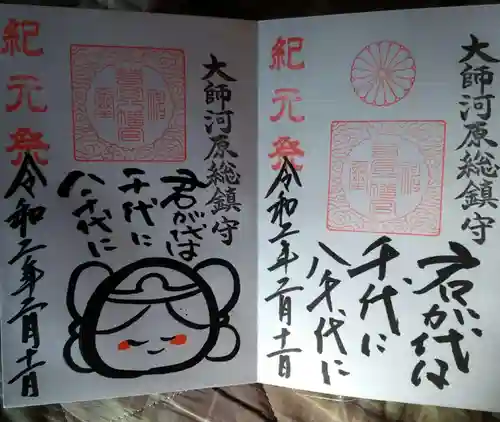 大師河原総鎮守
君が代は
千代に
八千代に
紀元祭
令和二年二月十一日
大師河原総鎮守
君が代は
千代に
八千代に
紀元祭
令和二年二月十一日